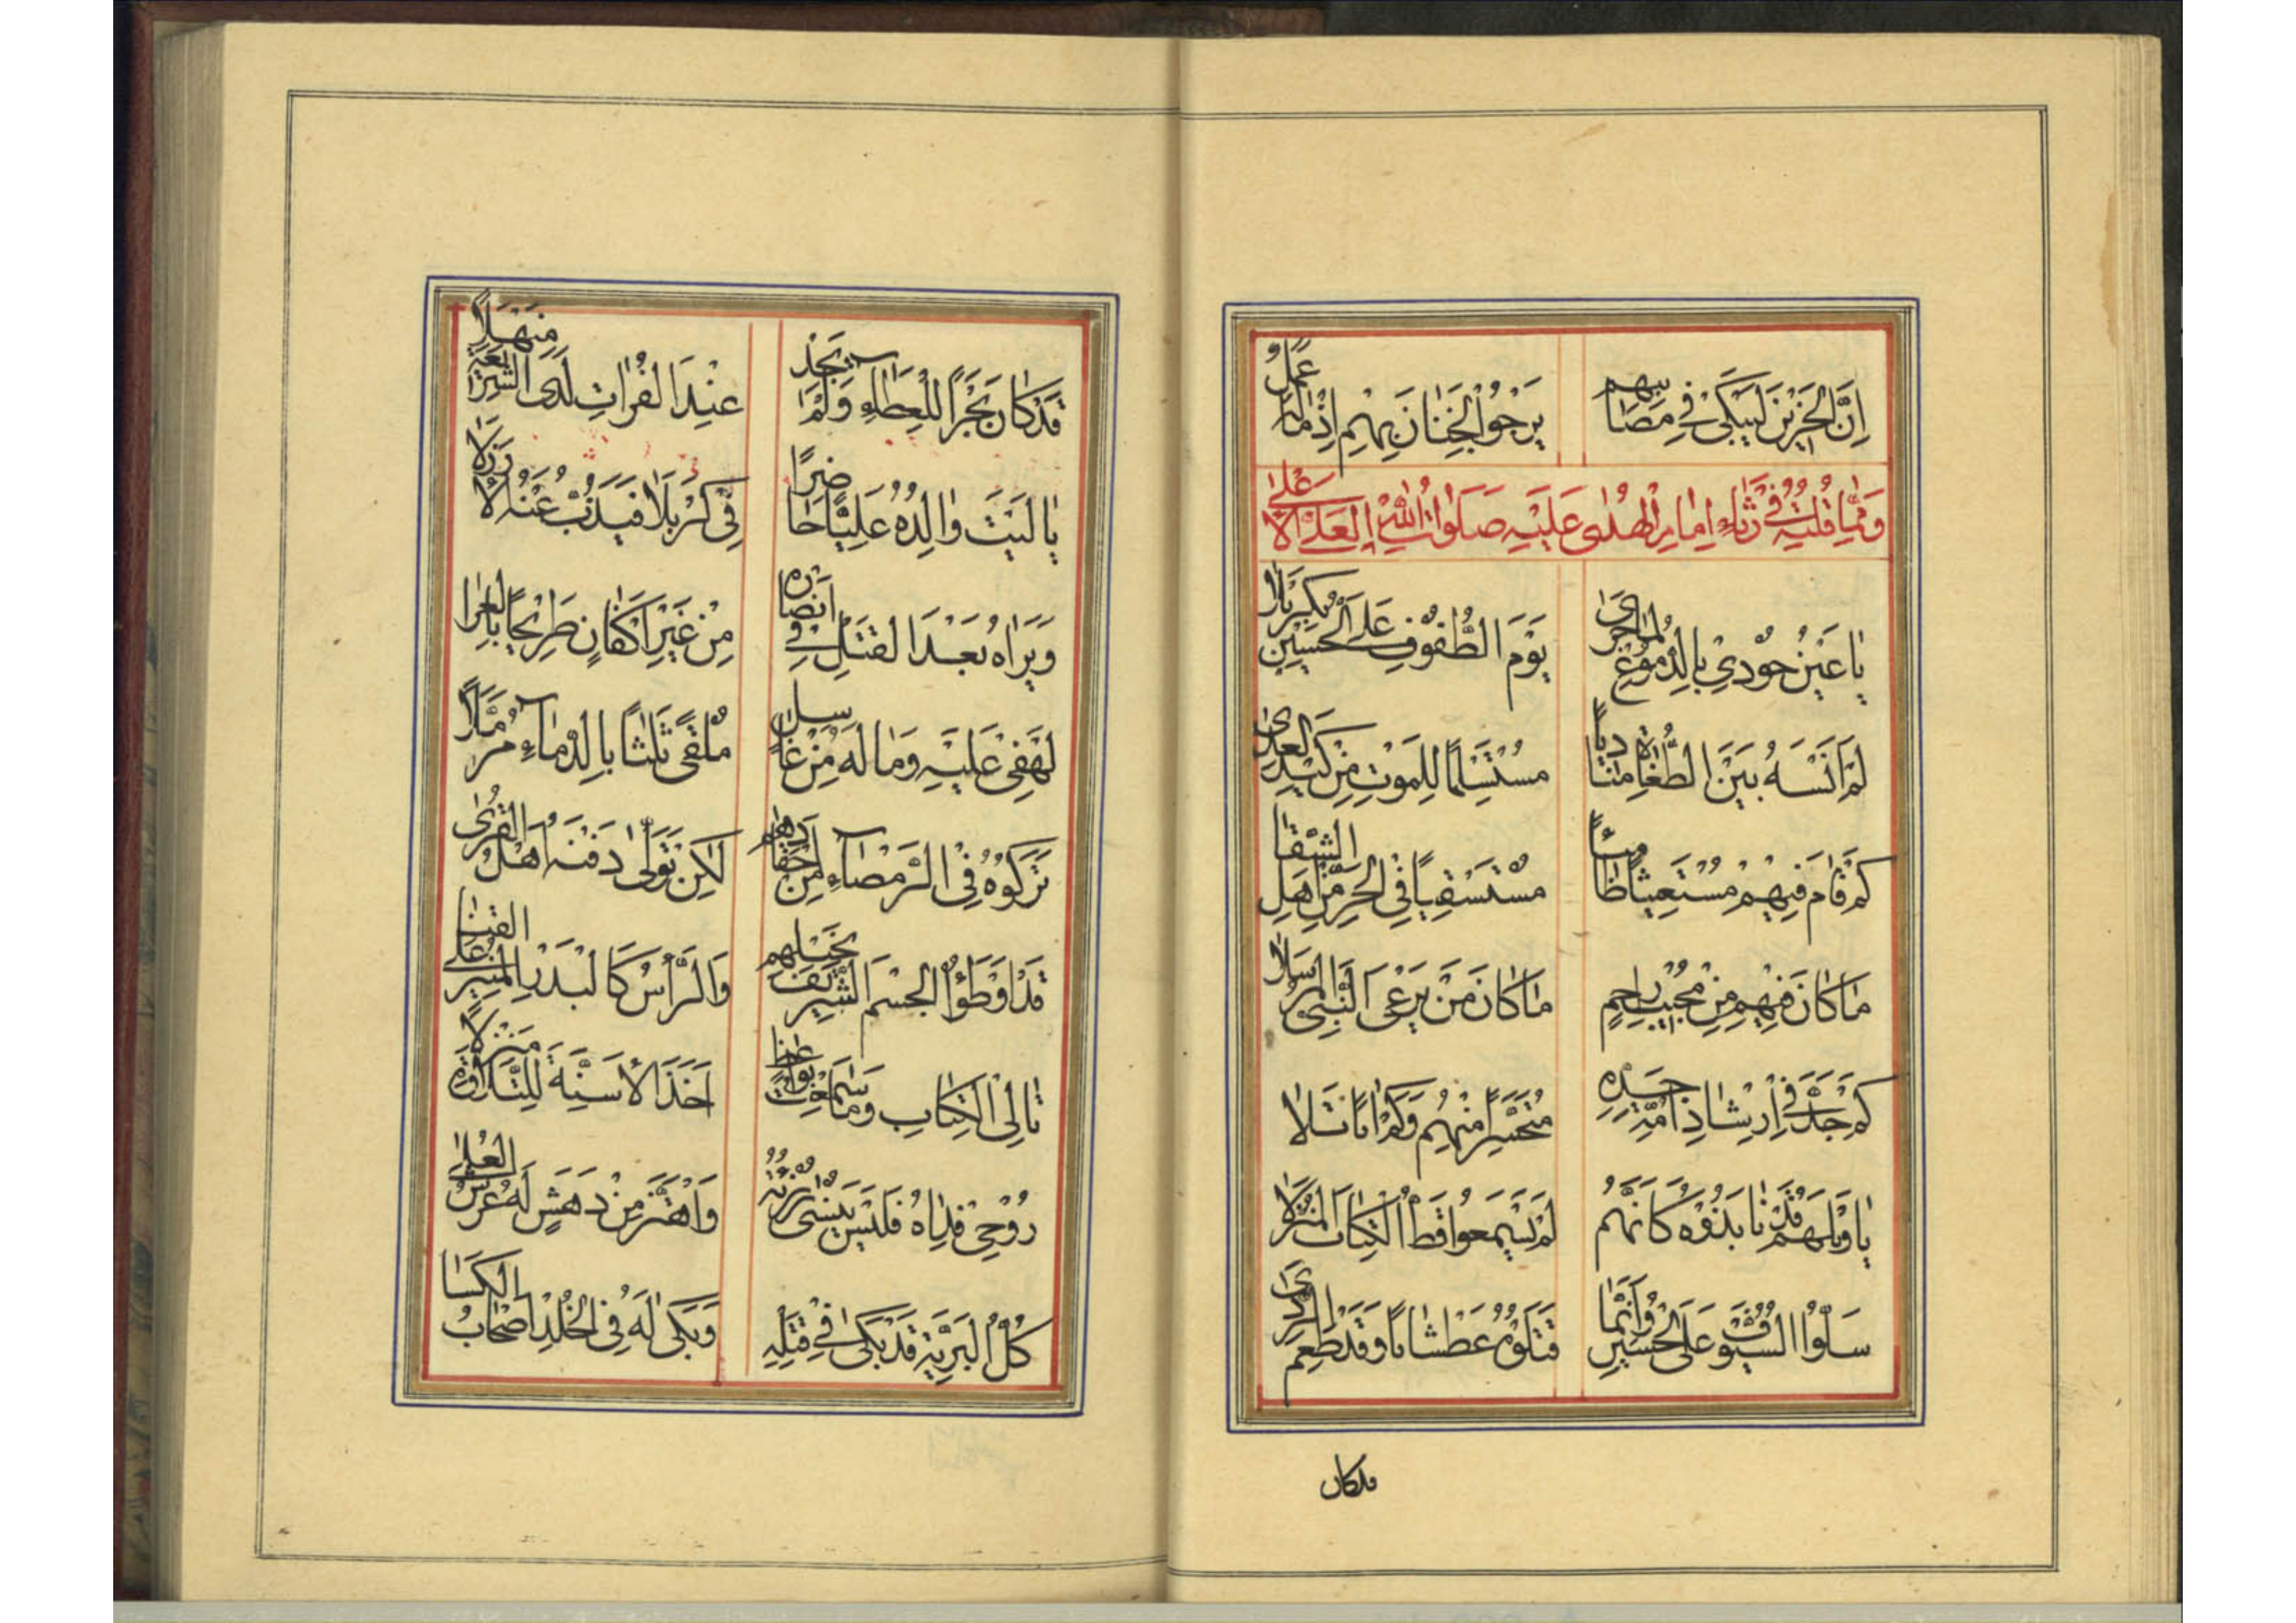 اِنَّ الْحَزِيْنَ لَيَبْكَىْ فِيْ مَصَائِبِهِم يَرْجُوْ الْجِنَانَ بِهِمْ اِذْ مَالَهُ عَمَلُ
وَمِمَّا قُلْتُهُ فِيْ رِثَاءِ اِمَامِ الْهُدٰى عَلَيْهِ صَلَوَاتُ اللّٰهِ الْعَلِيِّ الْاَعْلٰى
يَا عَيْنُ جُوْدِيْ بِالدُّمُوْعِ لِمَا جَرٰى يَوْمَ الطُّفُوْفِ عَلَى الْحُسَيْنِ بِكَرْبَلَا
لَمْ اَنْسَهُ بَيْنَ الطُّغَاةِ مُنَادِيًا مُسْتَسْلِمًا لِلْمَوْتِ مِنْ كَيْدِ الْعِدٰى
كَمْ قَامَ فِيْهِمْ مُسْتَغِيْثًا ظَامِئًا مُسْتَسْقِيًا فِي الْحَرِّ مِنْ اَهْلِ الشَّقَا
مَا كَانَ فِيْهِمْ مِنْ مُجِيْبٍ رَاحِمٍ مَا كَانَ مَنْ يَرْعَى النَّبِيَّ الْمُرْسَلَا
كَمْ جَدَّ فِيْ اِرْشَادِ اُمَّةِ جَدِّهِ مُتَحَسِّرًا مِنْهُمْ وَكَمْ اٰيًا تَلَا
يَا وَيْلَهُمْ قَدْ نَابَذُوْهُ كَاَنَّهُمْ لَمْ يَسْمَعُوْا قَطُّ الْكِتَابَ الْمُنْزَلَا
سَلُّوْا السُّيُوْفَ عَلَى الْحُسَيْنِ وَاِنَّمَا قَتَلُوْهُ عَطْشَانًا وَقَدْ طَعِمَ الرَّدٰى
قدكان
قَدْ كَانَ بَحْرًا لِلْعَطَاءِ وَلَمْ يَجِدْ عِنْدَ الْفُرَاتِ لَدَى الشَّرِيْعَةِ مَنْهَلًا
يَا لَيْتَ وَالِدَهُ عَلِيًّا حَاضِرًا فِيْ كَرْبَلَا فَيَذُبُّ عَنْهُ
وَيَرَاهُ بَعْدَ الْقَتْلِ فِيْ اَنْصَارِهِ مِنْ غَيْرِ اَكْفَانٍ طَرِيْحًا بِالْعَرَا
لَهْفِيْ عَلَيْهِ وَمَا لَهُ مِنْ غَاسِلٍ مُلْقًى ثَلٰثًا بِالدِّمَاءِ مُرَمَّلًا
تَرَكُوْهُ فِي الرَّمْضَاءِ مِنْ اَحْقَادِهِمْ لٰكِنْ تَوَلّٰى دَفْنَهُ اَهْلُ الْقُرٰى
قَدْ اَوْطَؤُا الْجِسْمَ الشَّرِيْفَ بِخَيْلِهِمْ وَالرَّأْسُ كَالْبَدْرِ الْمُنِيْرِ عَلَى الْقَنَا
تَالِى الْكِتَابِ وَمَا سَمِعْتُ اَخَذَ الْاَسِنَّةَ لِلتِّلَاوَةِ مَنْزِلًا
رُوْحِيْ فِدَاهُ فَلَيْسَ يُنْسٰى رُزْئُهُ وَاهْتَزَّ مِنْ دَهَشٍ لَهُ عَرْشُ الْعُلٰى
كُلُّ الْبَرِيَّةِ قَدْ بَكٰى فِيْ قَتْلِهِ وَبَكٰى لَهُ فِي الْخُلْدِ اَصْحَابُ الْكِسَا